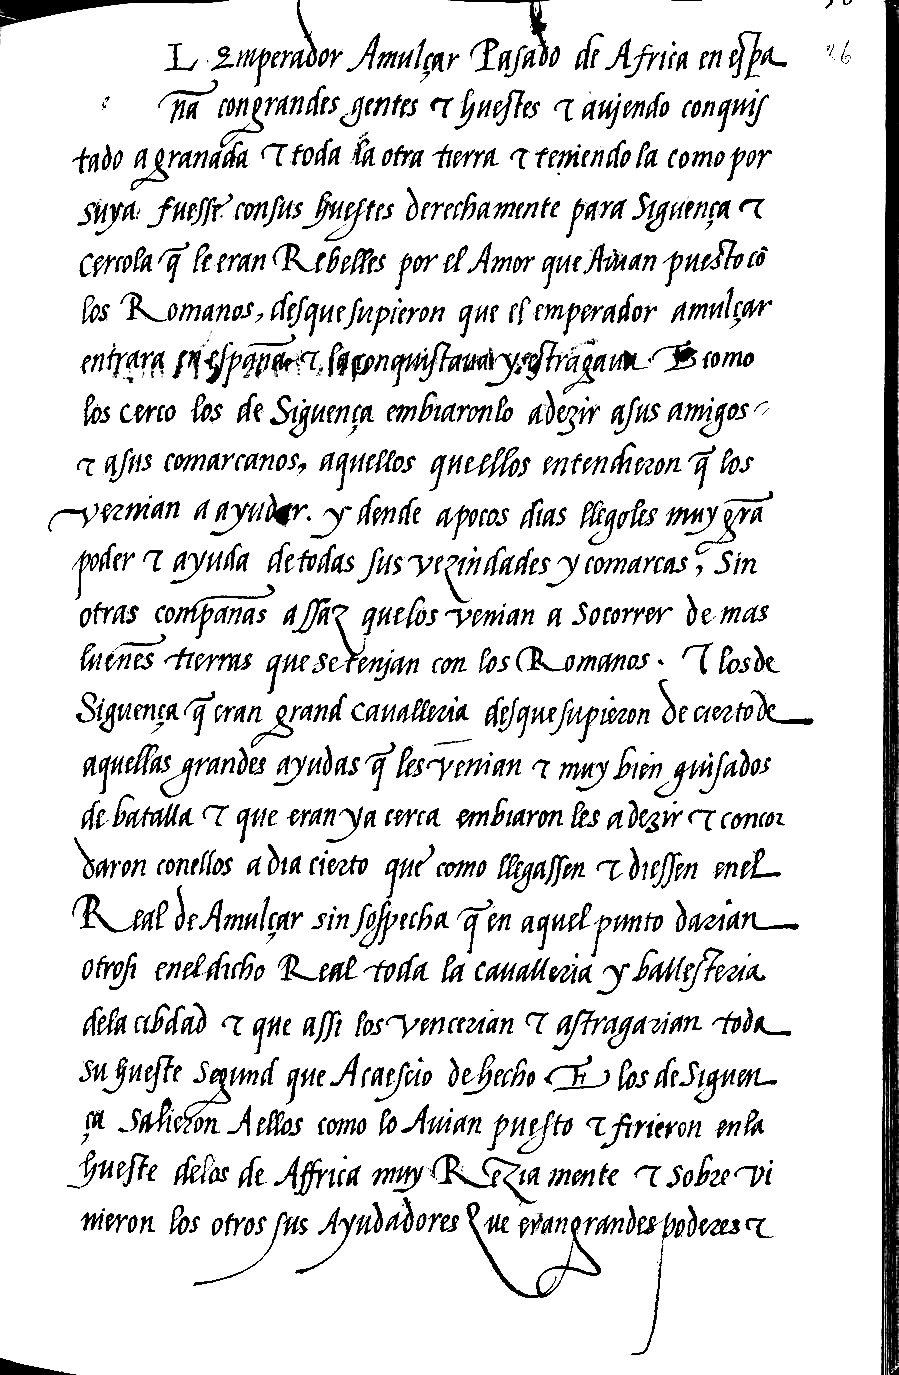 26
L Emperador Amulçar Pasado de Africa en espa
ña con grandes gentes τ huestes τ aujendo conquis
tado a granada τ toda la otra tierra τ teniendo la como por
suya. fuesse con sus huestes derechamente para Siguença τ
Cercola q̃ le eran Rebelles por el Amor que Auian puesto cõ
los Romanos, desque supieron que el emperador amulçar
entrara en españa τ la conquistaua y estragaua E como
los cerco los de Siguença embiaronlo a dezir a sus amigos
τ a sus comarcanos, aquellos que ellos entendieron q̃ los
vernian a ayudar. y dende a pocos dias llegoles muy grã
poder τ ayuda de todas sus vezindades y comarcas, Sin
otras compañas assaz que los venian a Socorrer de mas
lueñes tierras que se tenjan con los Romanos. τ los de
Siguença q̃ eran grand caualleria desque supieron de cierto de
aquellas grandes ayudas q̃ les venian τ muy bien guisados
de batalla τ que eran ya cerca embiaron les a dezir τ concor
daron con ellos a dia cierto que como llegassen τ diessen en el
Real de Amulçar sin sospecha q̃ en aquel punto darian
otrosi en el dicho Real toda la caualleria y ballesteria
de la cibdad τ que assi los vencerian τ astragarian toda
su hueste segund que Acaescio de hecho E los de Siguen
ça Salieron A ellos como lo Auian puesto τ firieron en la
hueste de los de Affrica muy Rezia mente τ sobre vi
nieron los otros sus Ayudadores Que eran grandes poderes τ